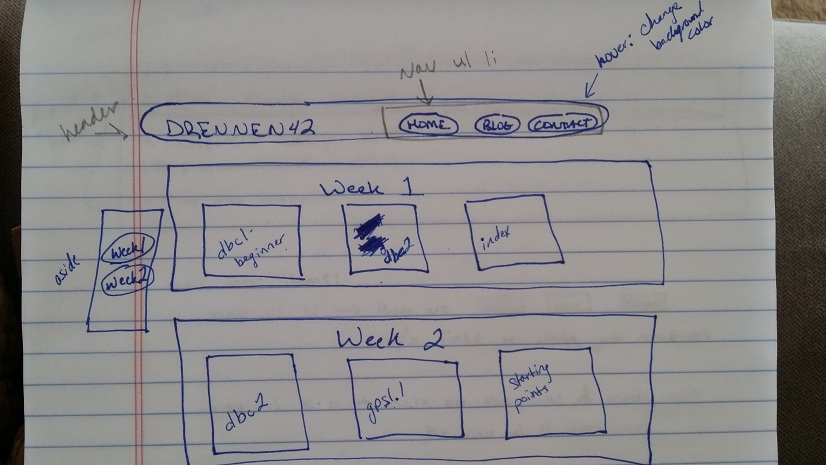 hover: change
background
color
Nav ul li
header
DRENNEN42
HOME
BLOG
CONTACT
Week 1
dbc1-
beginner
dbc2
index
aside
Week1
Week2
Week 2
dbc2
gps1.1
starting
points